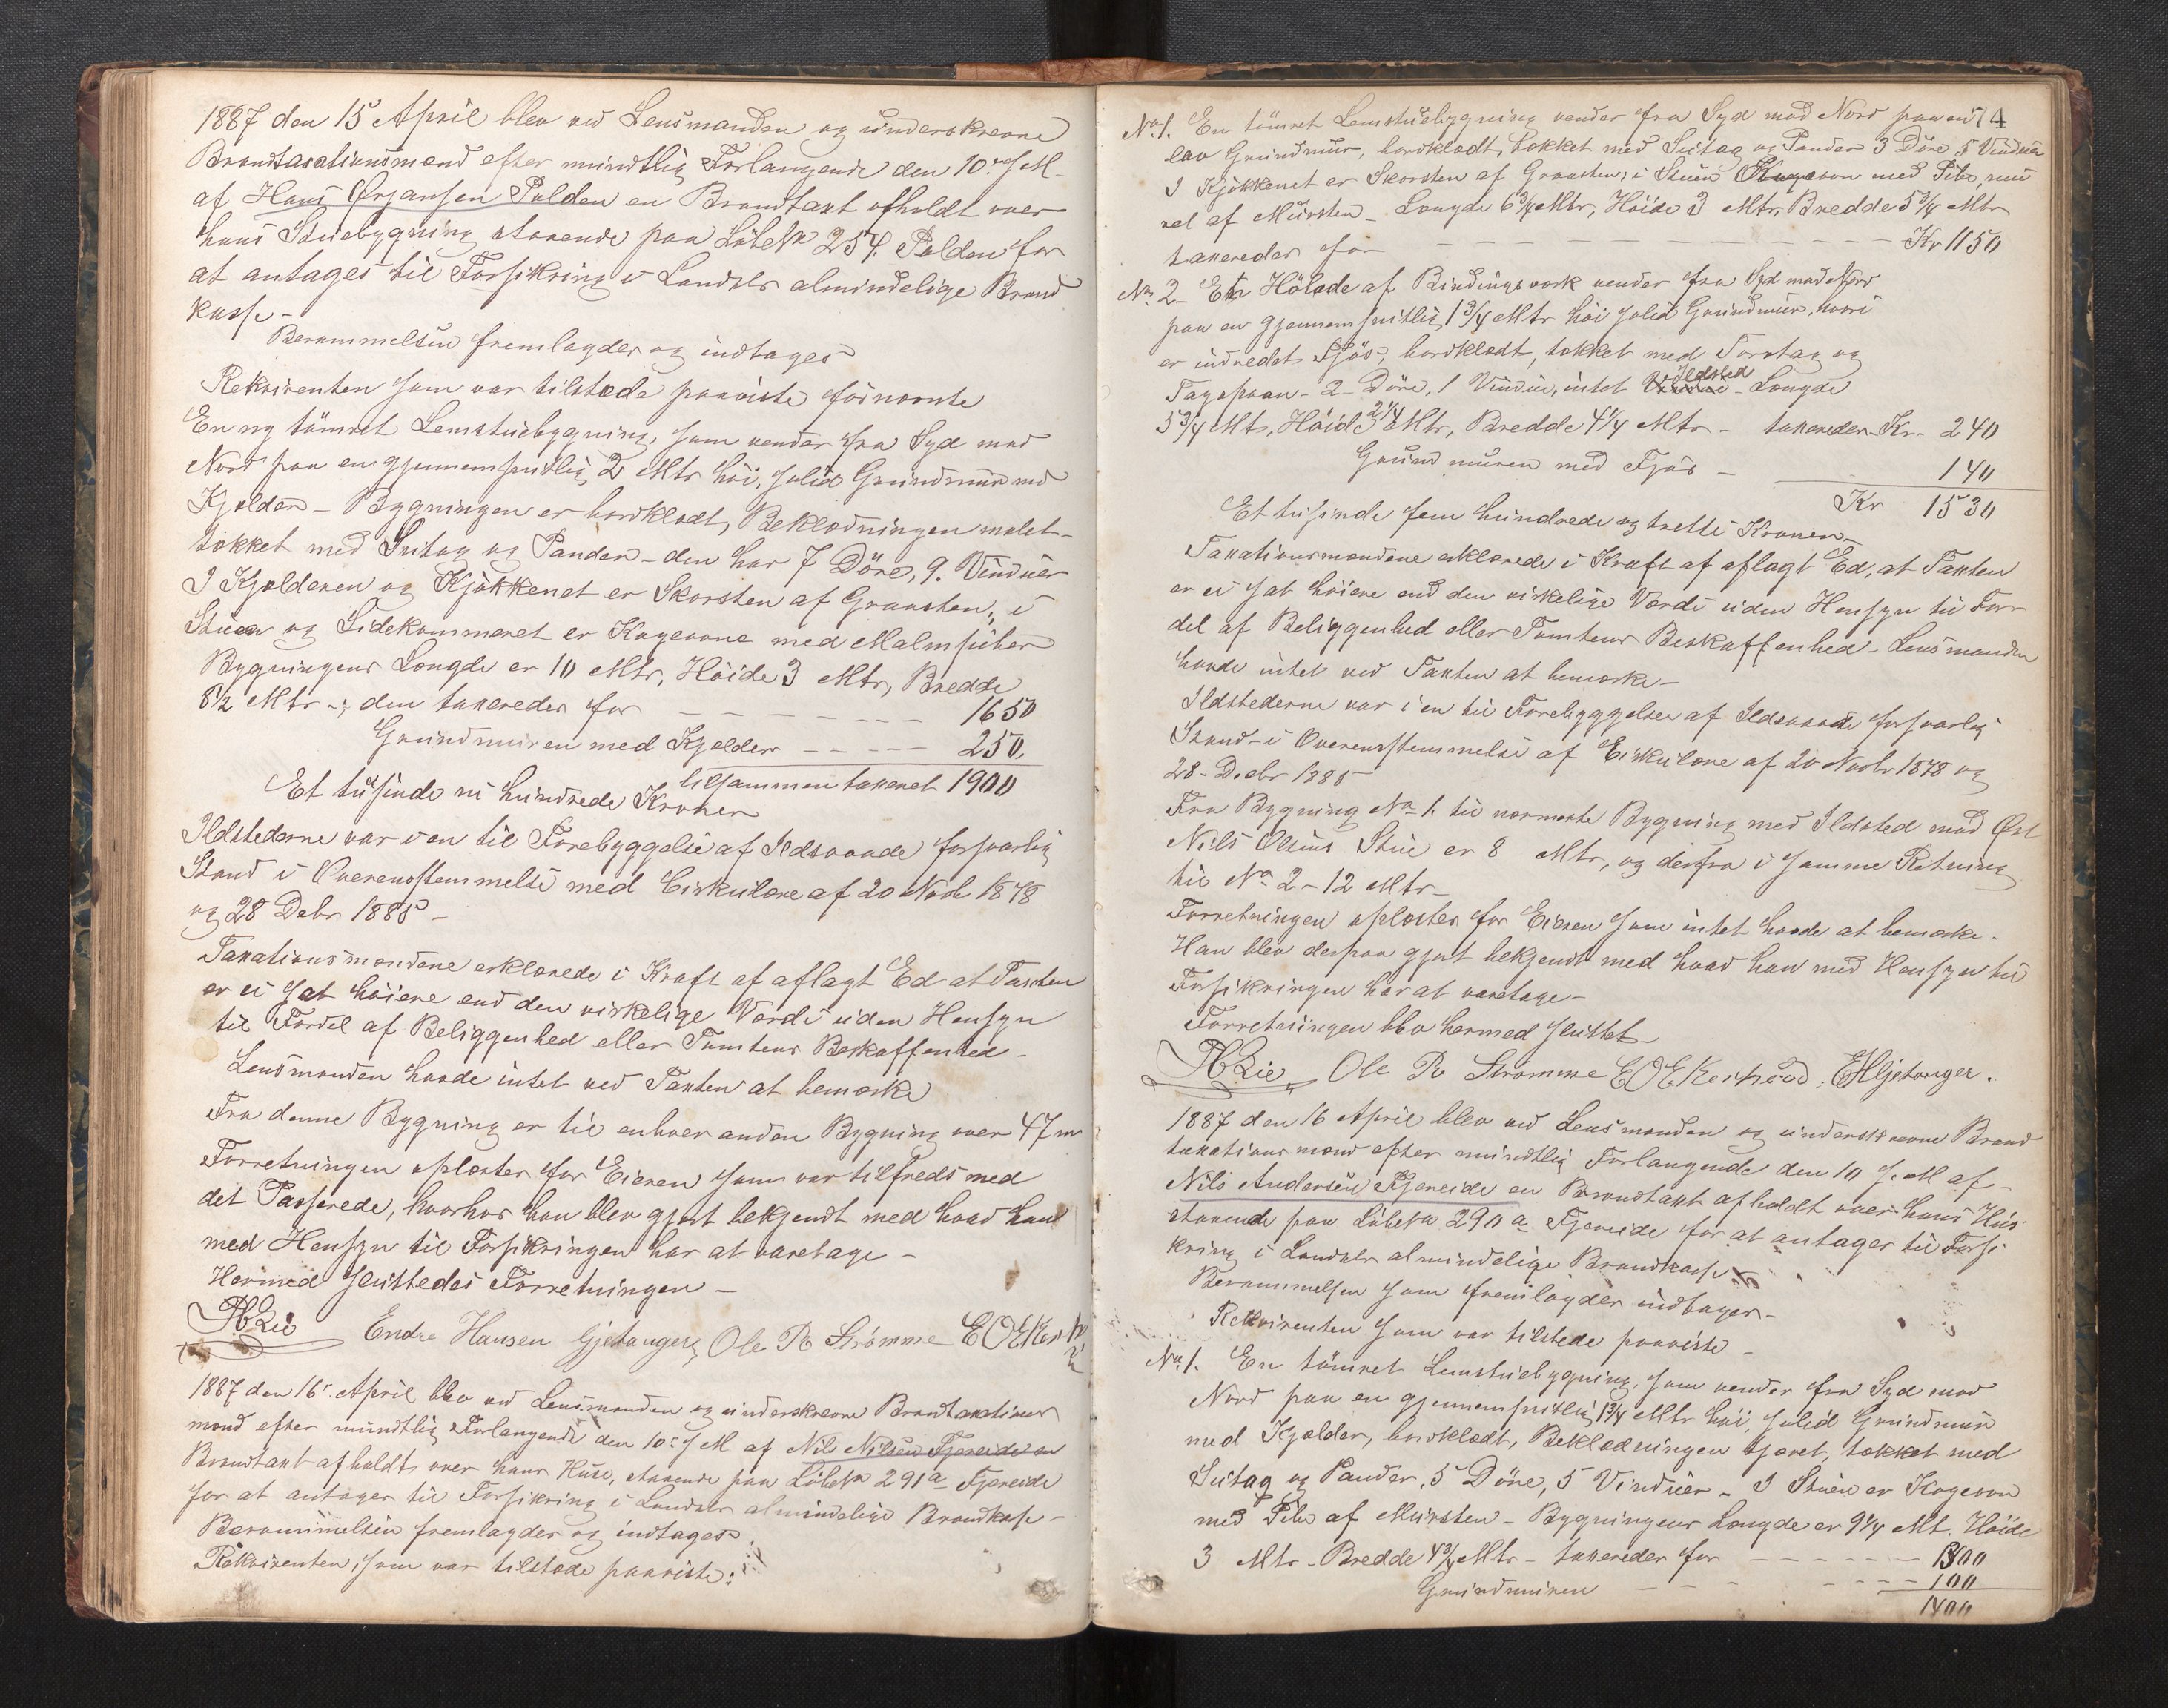 1887 den 15 April blev ved Lensmanden og underskrevne
Brandtaxationsmænd efter mundtlig Forlangende den 10. ds M.
af Hans Ørjansen Polden en Brandtaxt afholdt over
hans Stuebygning staaende paa Löbe No 254. Polden for
at antages til Forsikring i Landets almindelige Brand
kasse -
Berammelsen fremlagdes og indtages
Rekvirenten som var tilstæde paaviste förnævnte
En ny tömret Lemstuebygning, som vender fra Syd mod
Nord paa en gjennemsnitlig 2 Mtr höi, solid Grundmur med
Kjelder - Bygningen er bordklædt, Beklædningen malet -
tækket med Sutag og Pander - den har 7 Döre, 9. Vinduer
I Kjelderen og Kjökkenet er Skorsten af Graasten, i
Stuen og Sidekammeret er Kogeovne med Malmpiber
Bygningens Længde er 10 Mtr, Höide 3 Mtr, Bredde
8½ Mtr -; den taxeredes for - - - - - - - 1650
Grundmuren med Kjelder - - - - - 250.
tilsammen taxeret 1900
Et tusinde ni hundrede Kroner
Ildstederne var i en til Forebyggelse af Ildsvaade forsvarlig
Stand i Overensstemmelse med Cirkulære af 20 Novb 1878
og 28 Debr 1885 -
Taxationsmændene erklærede i Kraft af aflagt Ed at Taxten
er ei sat höiere end den virkelige Værdi uden Hensyn
til Fordel af Beliggenhed eller Tomtens Beskaffenhed -
Lensmanden havde intet ved Taxten at bemærke
Fra denne Bygning er til enhver anden Bygning over 47 m
Forretningen oplæstes for Eieren som var tilfreds med
det Passerede, hvorhos han blev gjort bekjendt med hvad han
med Hensyn til Forsikringen har at varetage -
Hermed sluttedes Forretningen -
Lie Endre Hansen Gjetanger, Ole R Strömme E O Eker
1887 den 16. April blev ved Lensmanden og underskrevne Brandtaxations
mænd efter mundtlig Forlangende den 10. ds M af Nils Nilsen Fjereide en
Brandtaxt afholdt over hans Huse, staaende paa Löbe No 291 a Fjereide
for at antages til Forsikring i Landets almindelige Brandkasse -
Berammelsen fremlagdes og indtages.
Rekvirenten som var tilstæde paaviste:
74
No 1. En tömret Lemstuebygning vender fra Syd mod Nord paa en
lav Grundmur, bordklædt, tækket med Sutag og Pander 3 Döre 5 Vinduer
I Kjökkenet er Skorsten af Graasten, i Stuen Kogeovn med Pibe, mu
ret af Mursten - Længde 6¾ Mtr, Höide 3 Mtr, Bredde 5¾ Mtr
taxeredes for - - - - - - - - - - - - Kr 1150
No 2 - En Hölade af Bindingsværk vender fra Syd mod Nord
paa en gjennemsnitlig 1¾ Mtr höi solid Grundmur, hvori
er indredet Fjös, bordklædt, tækket med Torvtag og
Tagspaan - 2 Döre, 1 Vindue, intet Ildsted - Længde
5¾ Mt, Höide 2¼ Mtr, Bredde 4¼ Mtr - taxeredes Kr - 240
Grundmuren med Fjös - 140
Kr 1530
Et tusinde fem hundrede og tretti Kroner -
Taxationsmændene erklærede i Kraft af aflagt Ed, at Taxten
er ei sat höiere end den virkelige Værdi uden Hensyn til For-
del af Beliggenhed eller Tomtens Beskaffenhed - Lensmanden
havde intet ved Taxten at bemærke -
Ildstederne var i en til Forebyggelse af Ildsvaade forsvarlig
Stand - i Overensstemmelse af Cirkulære af 20 Novbr 1878 og
28 - Decbr 1885
Fra Bygning No 1. til nærmeste Bygning med Ildsted mod Øst
Nils Olsens Stue er 8 Mtr, og derfra i samme Retning
til No 2 - 12 Mtr -
Forretningen oplæstes for Eieren som intet havde at bemærke.
Han blev derpaa gjort bekjendt med hvad han med Hensyn til
Forsikringen har at varetage -
Forretningen blev hermed sluttet -
Lie Ole R Strömme E O Ekerhovd, E H Gjetanger.
1887 den 16 April blev ved Lensmanden og underskrevne Brand
taxationsmænd efter mundtlig Forlangende den 10 ds. M af -
Nils Andersen Fjereide en Brandtaxt afholdt over hans Hus
staaende paa Löbe No 290 a Fjereide for at antages til Forsi-
kring i Landets almindelige Brandkasse
Berammelsen som fremlagdes indtages -
Rekvirenten som var tilstede paaviste -
No 1. En tömret Lemstuebygning, som vender fra Syd mod
Nord paa en gjennemsnitlig 1¾ Mtr höi, solid Grundmur
med Kjelder, bordklædt, Beklædningen tjæret, tækket med
Sutag og Pander, 5 Döre, 5 Vinduer - I Stuen er Kogeovn
med Pibe af Mursten - Bygningens Længde er 9¼ Mt. Höide
3 Mtr - Bredde 4¾ Mtr - taxeredes for - - - - - - 1300
Grundmuren - - - - - - - 100
1400